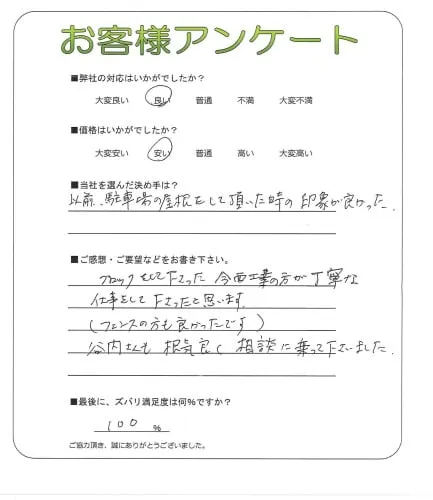 お客様アンケート
■弊社の対応はいかがでしたか?
大変良い 良い 普通 不満 大変不満
■価格はいかがでしたか?
大変安い 安い 普通 高い 大変高い
■当社を選んだ決め手は?
以前、駐車場の屋根をして頂いた時の印象が良かった.
■ご感想・ご要望などをお書き下さい。
ブロックをして下さった 今西工業の方が丁寧な
仕事をして下さったと思います.
(フェンスの方も良かったです)
谷内さんも 根気良く 相談に乗って下さいました.
■最後に、ズバリ満足度は何%ですか?
100 %
ご協力頂き、誠にありがとうございました。